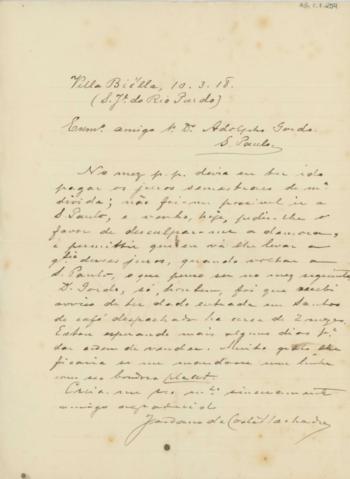 AG.1.1.254
Villa Biëlla, 10.3.18.
(S. J. do Rio Pardo)
Exmo. amigo Sr. Dr. Adolpho Gordo.
S. Paulo.
No mez p.p. devia eu ter ido
pagar os juros semestraes de ma.
divida; não foi-me possivel ir a
S. Paulo, e venho, hoje, pedir-lhe o
favor de desculpar-me a demora,
e permittir que eu vá lhe levar a
desses juros, quando voltar a
S. Paulo, o que penso ser no mez seguinte.
Dr. Gordo, só, hontem, foi que recebi
aviso de ter dado entrada em Santos
de café despachado ha cerca de 2 mezes.
Estou esperando mais alguns dias
dar ordem de vender. Muito grato lhe
ficaria se me mandasse uma linha
com sua bondosa
Creia-me seo mto. sinceramente
amigo agradecido